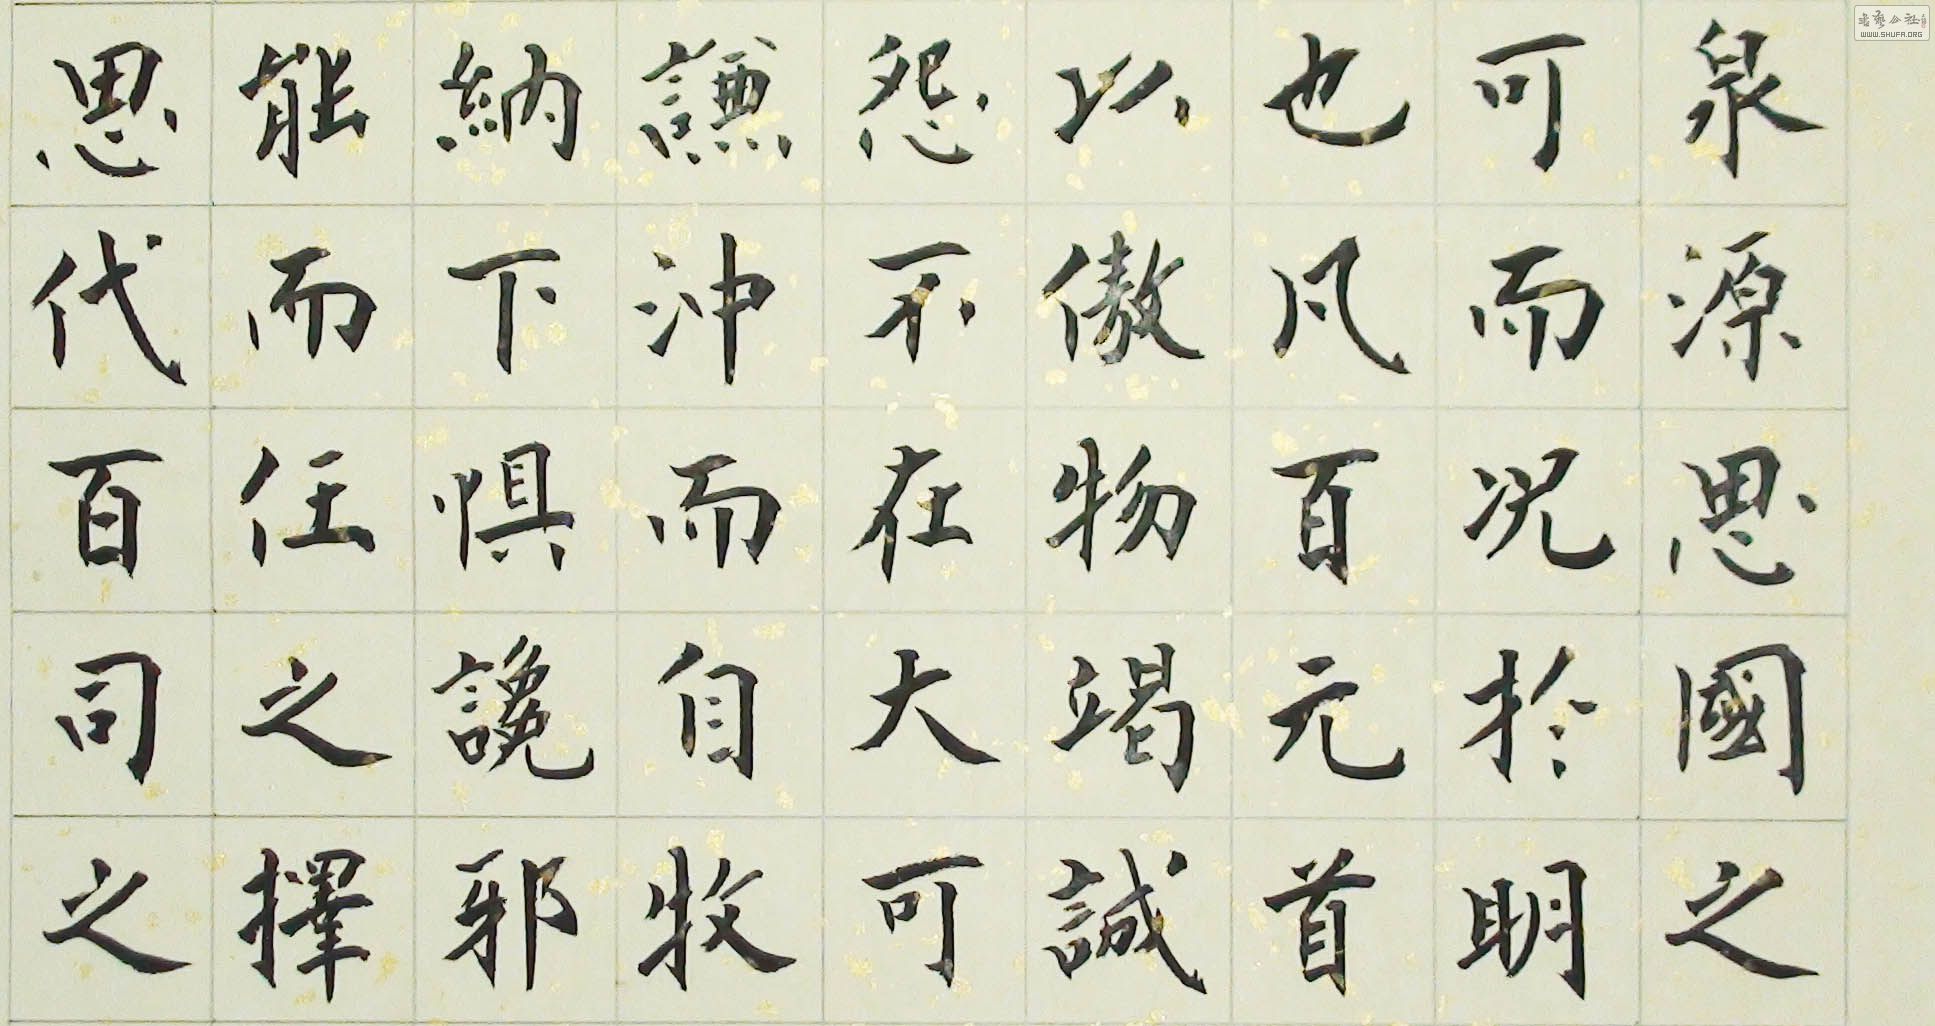 泉源思國之
可而况於明
也凡百元首
以傲物竭誠
怨不在大可
謙沖而自牧
納下惧讒邪
能而任之擇
思代百司之
書藝公社
WWW.SHUFA.ORG